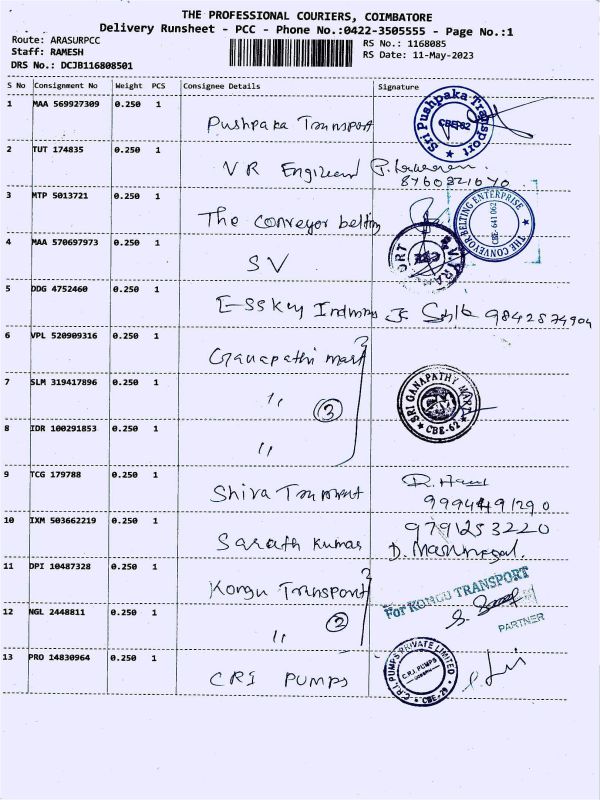 THE PROFESSIONAL COURIERS, COIMBATORE
Delivery Runsheet - PCC - Phone No.:0422-3505555 - Page No.:1
Route: ARASURPCC
RS No.: 1168085
Staff: RAMESH
RS Date: 11-May-2023
DRS No.: DCJB116808501
S No Consignment No Weight PCS Consignee Details Signature
1 MAA 569927309 0.250 1
Pushpaka Transport
Sri Pushpaka Transport
CBE-62
2 TUT 174835 0.250 1
VR Engineer
8760321070
3 MTP 5013721 0.250 1
The conveyor belting
THE CONVEYOR BELTING ENTERPRISE
CBE-641 062
4 MAA 570697973 0.250 1
SV
5 DDG 4752460 0.250 1
E-SS Key
9842574904
6 VPL 520909316 0.250 1
Ganapathi mart
7 SLM 319417896 0.250 1
" (3)
SRI GANAPATHY MART
CBE-62
8 IDR 100291853 0.250 1
"
9 TCG 179788 0.250 1
Shiva Transport
9994491290
10 IXM 503662219 0.250 1
Sarath Kumar
9791253220
11 DPI 10487328 0.250 1
Kongu Transport
For KONGU TRANSPORT
PARTNER
12 NGL 2448811 0.250 1
" (2)
13 PRO 14830964 0.250 1
CRI PUMPS
C.R.I. PUMPS PRIVATE LIMITED
C.R.I. PUMPS
CBE-29